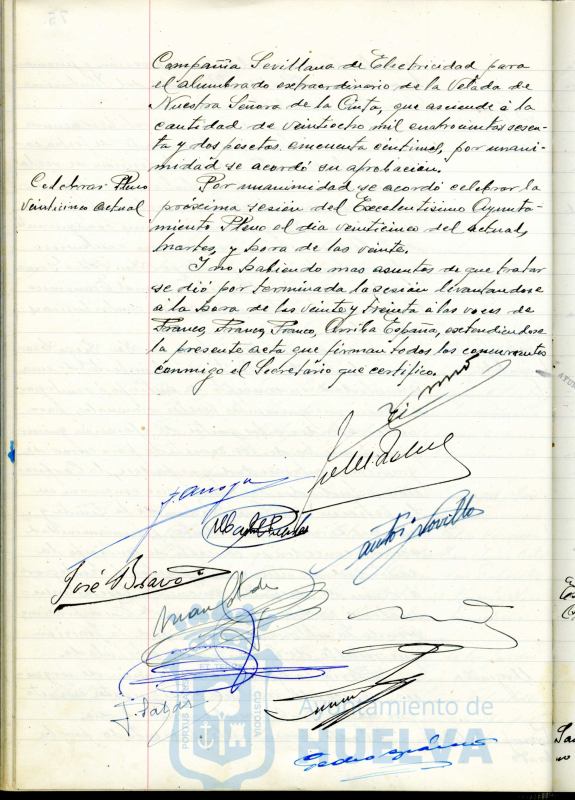 Compañia Sevillana de Electricidad para
el alumbrado extraordinario de la Velada de
Nuestra Señora de la Cinta, que asciende á la
cantidad de veintiocho mil cuatrocientas sesen-
ta y dos pesetas cincuenta centimos, por unani-
midad se acordó su aprobación.
Celebrar Pleno
veinticinco actual
Por unanimidad se acordó celebrar la
próxima sesión del Excelentisimo Ayunta-
miento Pleno el dia veinticinco del actual,
Martes, y hora de las veinte.
Y no habiendo mas asuntos de que tratar
se dió por terminada la sesión levantandose
á la hora de las veinte y treinta á las voces de
Franco, Franco, Franco, Arriba España, extendiendose
la presente acta que firman todos los concurrentes
conmigo el Secretario que certifico.
José Bravo
PORTUS MARIS ET TERRAE CUSTODIA
Ayuntamiento de
HUELVA